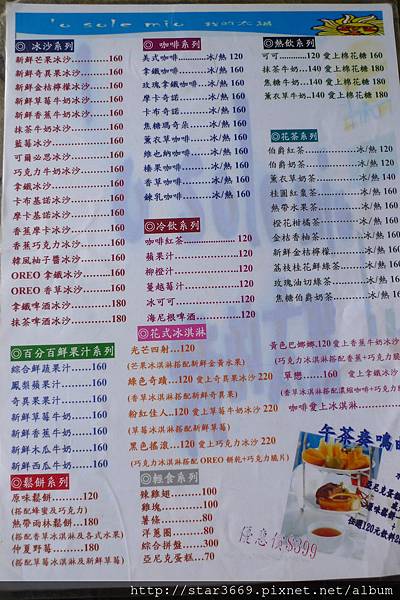 'o sole mio 我的太陽
◎ 冰沙系列
新鮮芒果冰沙............160
新鮮奇異果冰沙........160
新鮮金桔檸檬冰沙....160
新鮮草莓牛奶冰沙....160
新鮮香蕉牛奶冰沙....160
抹茶牛奶冰沙............160
藍莓冰沙....................160
可爾必思冰沙............160
巧克力牛奶冰沙........160
拿鐵冰沙....................160
卡布基諾冰沙............160
摩卡基諾冰沙............160
香蕉摩卡冰沙............160
香蕉巧克力冰沙........160
韓風柚子醬冰沙........160
OREO 拿鐵冰沙........160
OREO 香草冰沙........160
拿鐵啤酒冰沙............180
抹茶啤酒冰沙............180
◎百分百鮮果汁系列
綜合鮮蔬果汁......160
鳳梨蘋果汁..........160
奇異果果汁..........160
新鮮草莓牛奶......160
新鮮香蕉牛奶......160
新鮮木瓜牛奶......160
新鮮西瓜牛奶......160
◎鬆餅系列
原味鬆餅..........120
(搭配蜂蜜及巧克力)
熱帶雨林鬆餅....180
(搭配香草冰淇淋及各式水果)
仲夏野莓..........180
(搭配草莓冰淇淋及新鮮草莓)
◎ 咖啡系列
美式咖啡..........冰/熱 120
拿鐵咖啡..........冰/熱 160
玫瑰拿鐵咖啡...冰/熱 160
摩卡奇諾..........冰/熱 160
卡布奇諾..........冰/熱 160
焦糖瑪奇朵......冰/熱 160
薰衣草咖啡......冰/熱 160
維也納咖啡......冰/熱 160
榛果咖啡..........冰/熱 160
香草咖啡..........冰/熱 160
鍊乳咖啡..........冰/熱 160
◎冷飲系列
咖啡紅茶....................120
蘋果汁........................120
柳橙汁........................120
蔓越莓汁....................120
冰可可........................120
海尼根啤酒................120
◎花式冰淇淋
光芒四射...120
(芒果冰淇淋搭配新鮮金黃水果)
綠色奇蹟...120 愛上奇異果冰沙 220
(香草冰淇淋搭配新鮮奇異果)
粉紅佳人...120 愛上草莓牛奶冰沙 220
(草莓冰淇淋搭配新鮮草莓)
黑色搖滾...120 愛上巧克力冰沙 220
(巧克力冰淇淋搭配 OREO 餅乾+巧克力脆片)
◎輕食系列
辣雞翅..........100
雞塊..............100
薯條..............80
洋蔥圈..........80
綜合拼盤......300
亞尼克蛋糕...70
◎熱飲系列
可可.........120 愛上棉花糖 160
抹茶牛奶...140 愛上棉花糖 180
焦糖牛奶...140 愛上棉花糖 180
薰衣草牛奶...140 愛上棉花糖 180
◎花茶系列
伯爵紅茶................冰/熱 120
伯爵奶茶................冰/熱 120
薰衣草奶茶............冰/熱 140
桂圓紅棗茶............冰/熱 160
熱帶水果茶............冰/熱 160
橙花柑橘茶............冰/熱 160
金桔香柚茶............冰/熱 160
新鮮金桔檸檬........冰/熱 160
荔枝桂花鮮綠茶....冰/熱 160
玫瑰油切綠茶........冰/熱 160
焦糖伯爵奶茶........冰/熱 160
黃色巴娜娜..120 愛上香蕉牛奶冰沙
(巧克力冰淇淋搭配香蕉+巧克力脆
草戀......160 愛上拿鐵冰沙
(香草冰淇淋搭配濃縮咖啡+巧克力
咖啡愛上冰淇淋
午茶奏鳴
亞尼克蛋糕
原味鬆餅
任選120元飲料
優惠價$399
http://star3669.pixnet.net/album